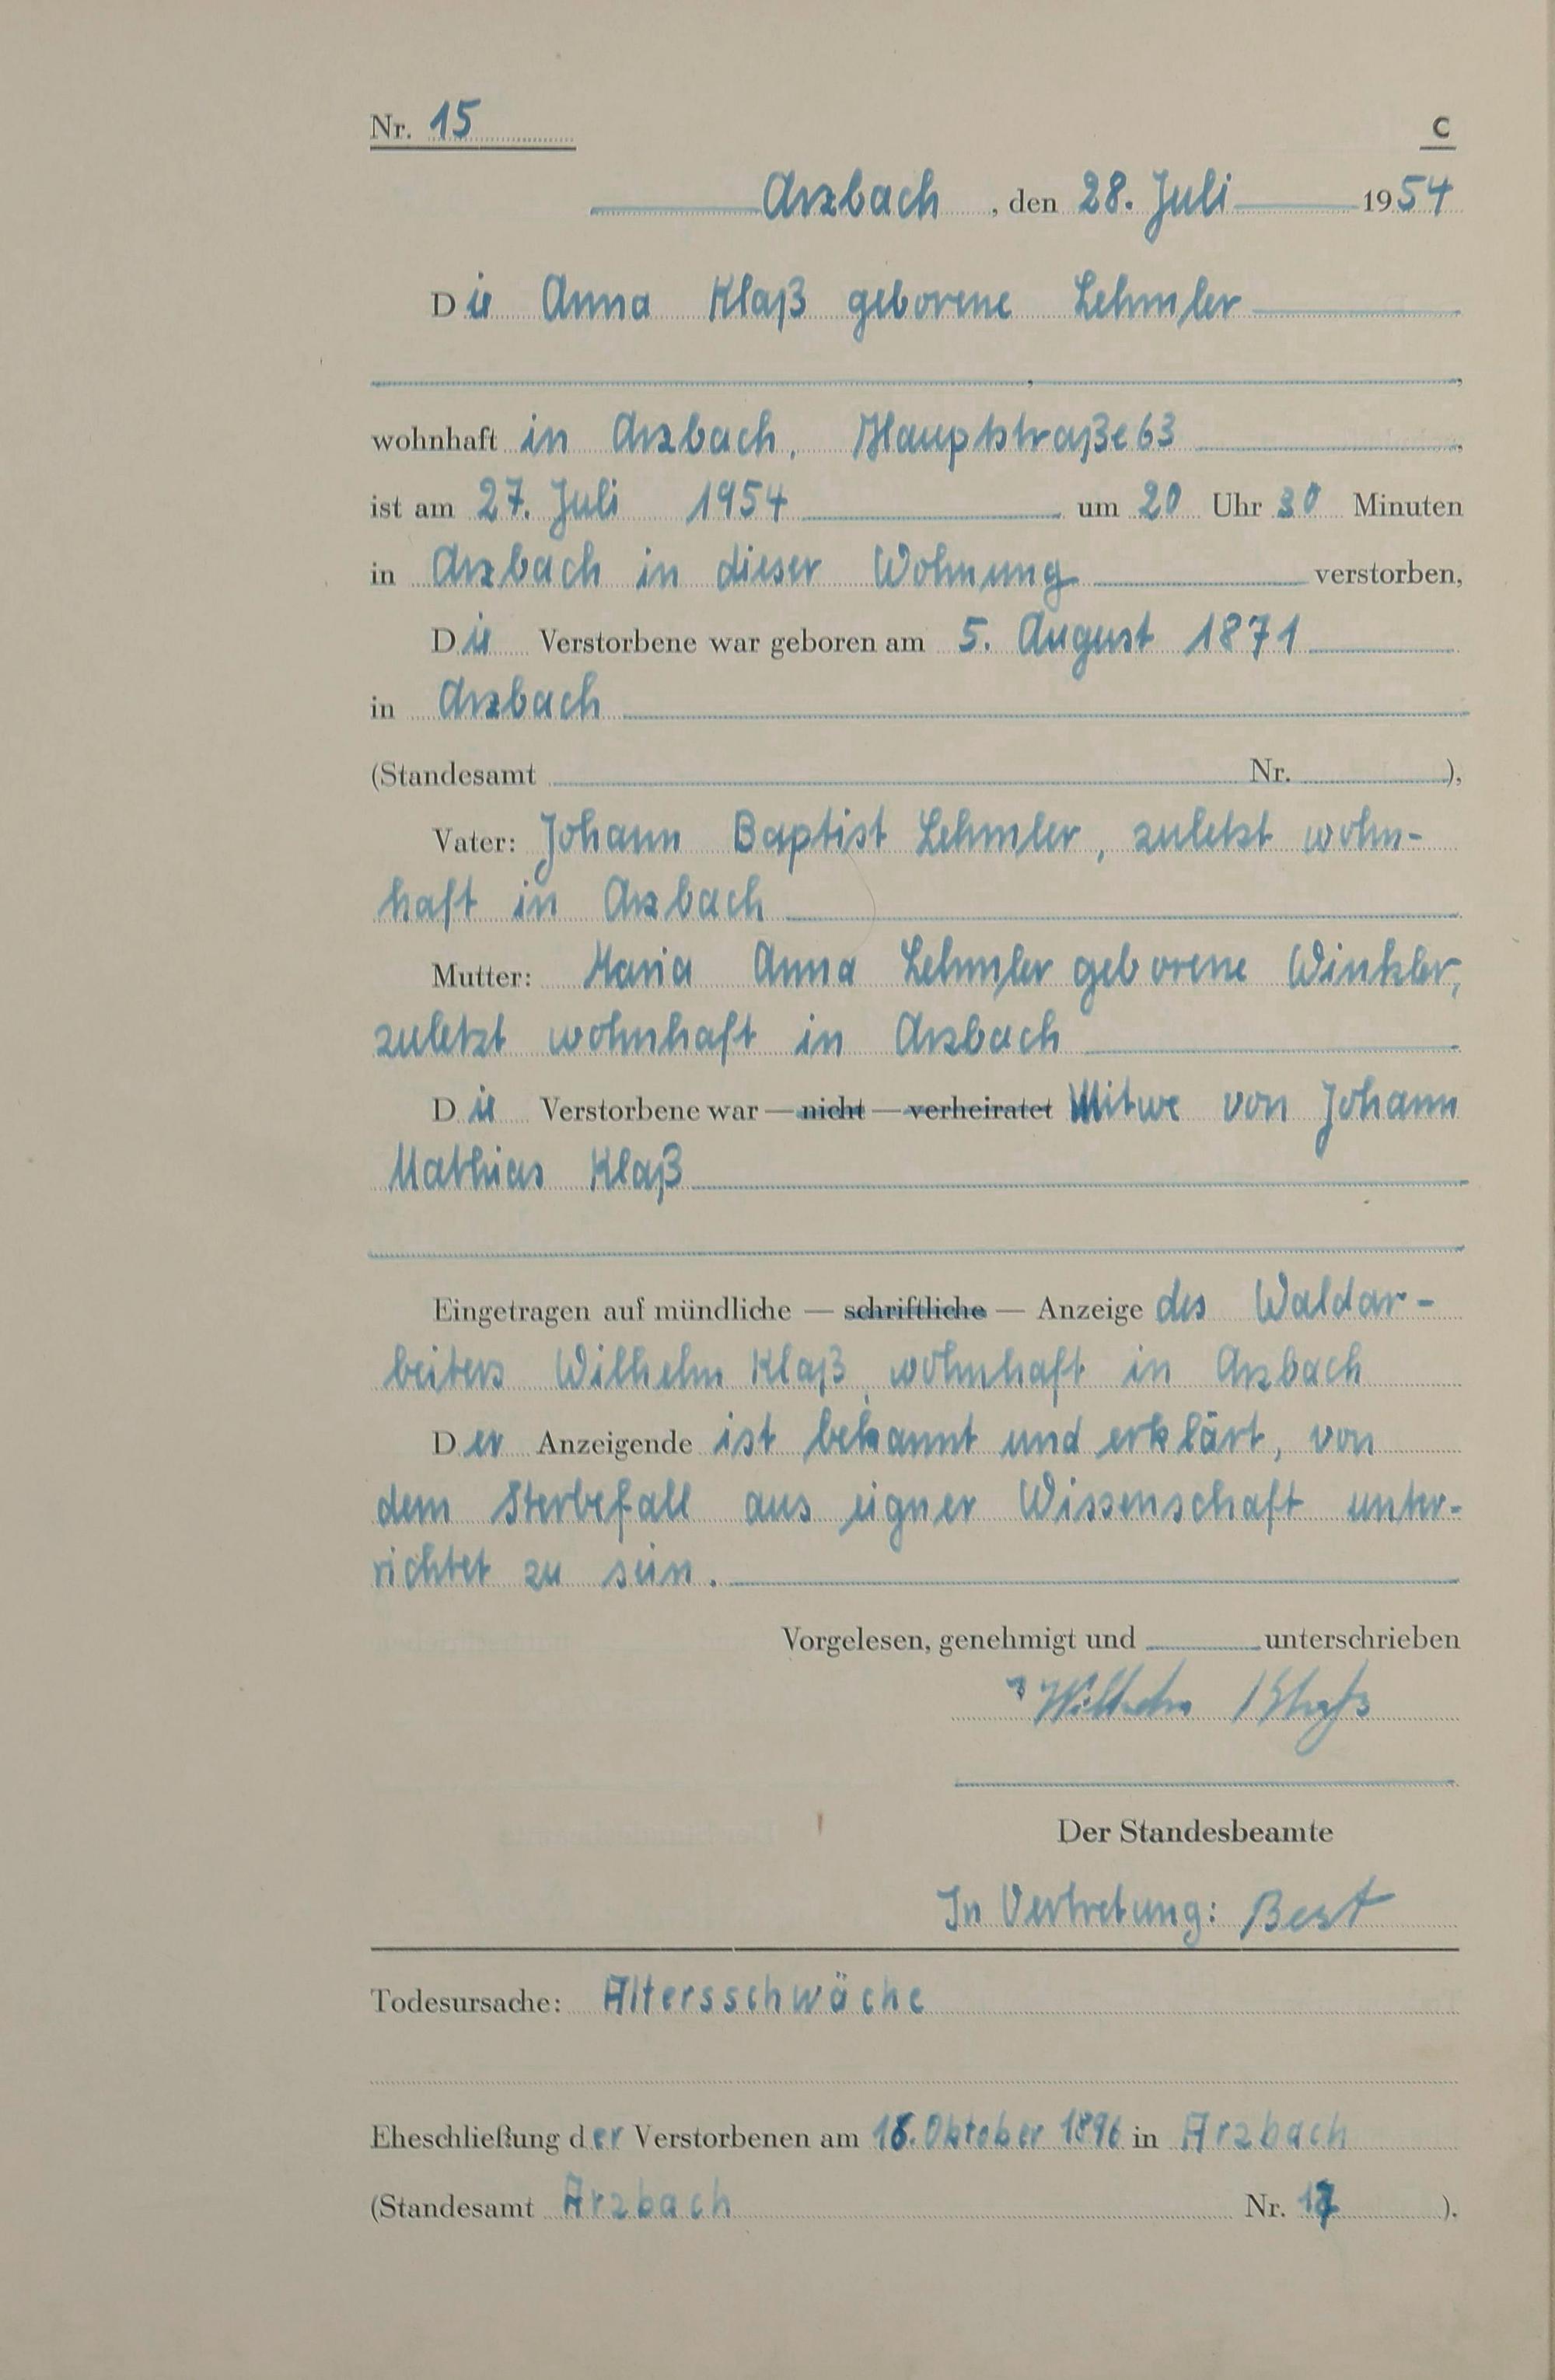 Nr. 15 C
Arzbach, den 28. Juli 1954
Die Anna Klaß geborene Lehmler
,
wohnhaft in Arzbach, Hauptstraße 63,
ist am 27. Juli 1954 um 20 Uhr 30 Minuten
in Arzbach in dieser Wohnung verstorben,
Die Verstorbene war geboren am 5. August 1871
in Arzbach
(Standesamt Nr. ),
Vater: Johann Baptist Lehmler, zuletzt wohn-
haft in Arzbach
Mutter: Maria Anna Lehmler geborene Winkler,
zuletzt wohnhaft in Arzbach
Die Verstorbene war — nicht — verheiratet Witwe von Johann
Mathias Klaß
Eingetragen auf mündliche — schriftliche — Anzeige des Waldar-
beiters Wilhelm Klaß, wohnhaft in Arzbach
Der Anzeigende ist bekannt und erklärt, von
dem Sterbefall aus eigner Wissenschaft unter-
richtet zu sein.
Vorgelesen, genehmigt und unterschrieben
Wilhelm Klaß
Der Standesbeamte
In Vertretung: Best
Todesursache: Altersschwäche
Eheschließung der Verstorbenen am 18. Oktober 1896 in Arzbach
(Standesamt Arzbach Nr. 17 ).